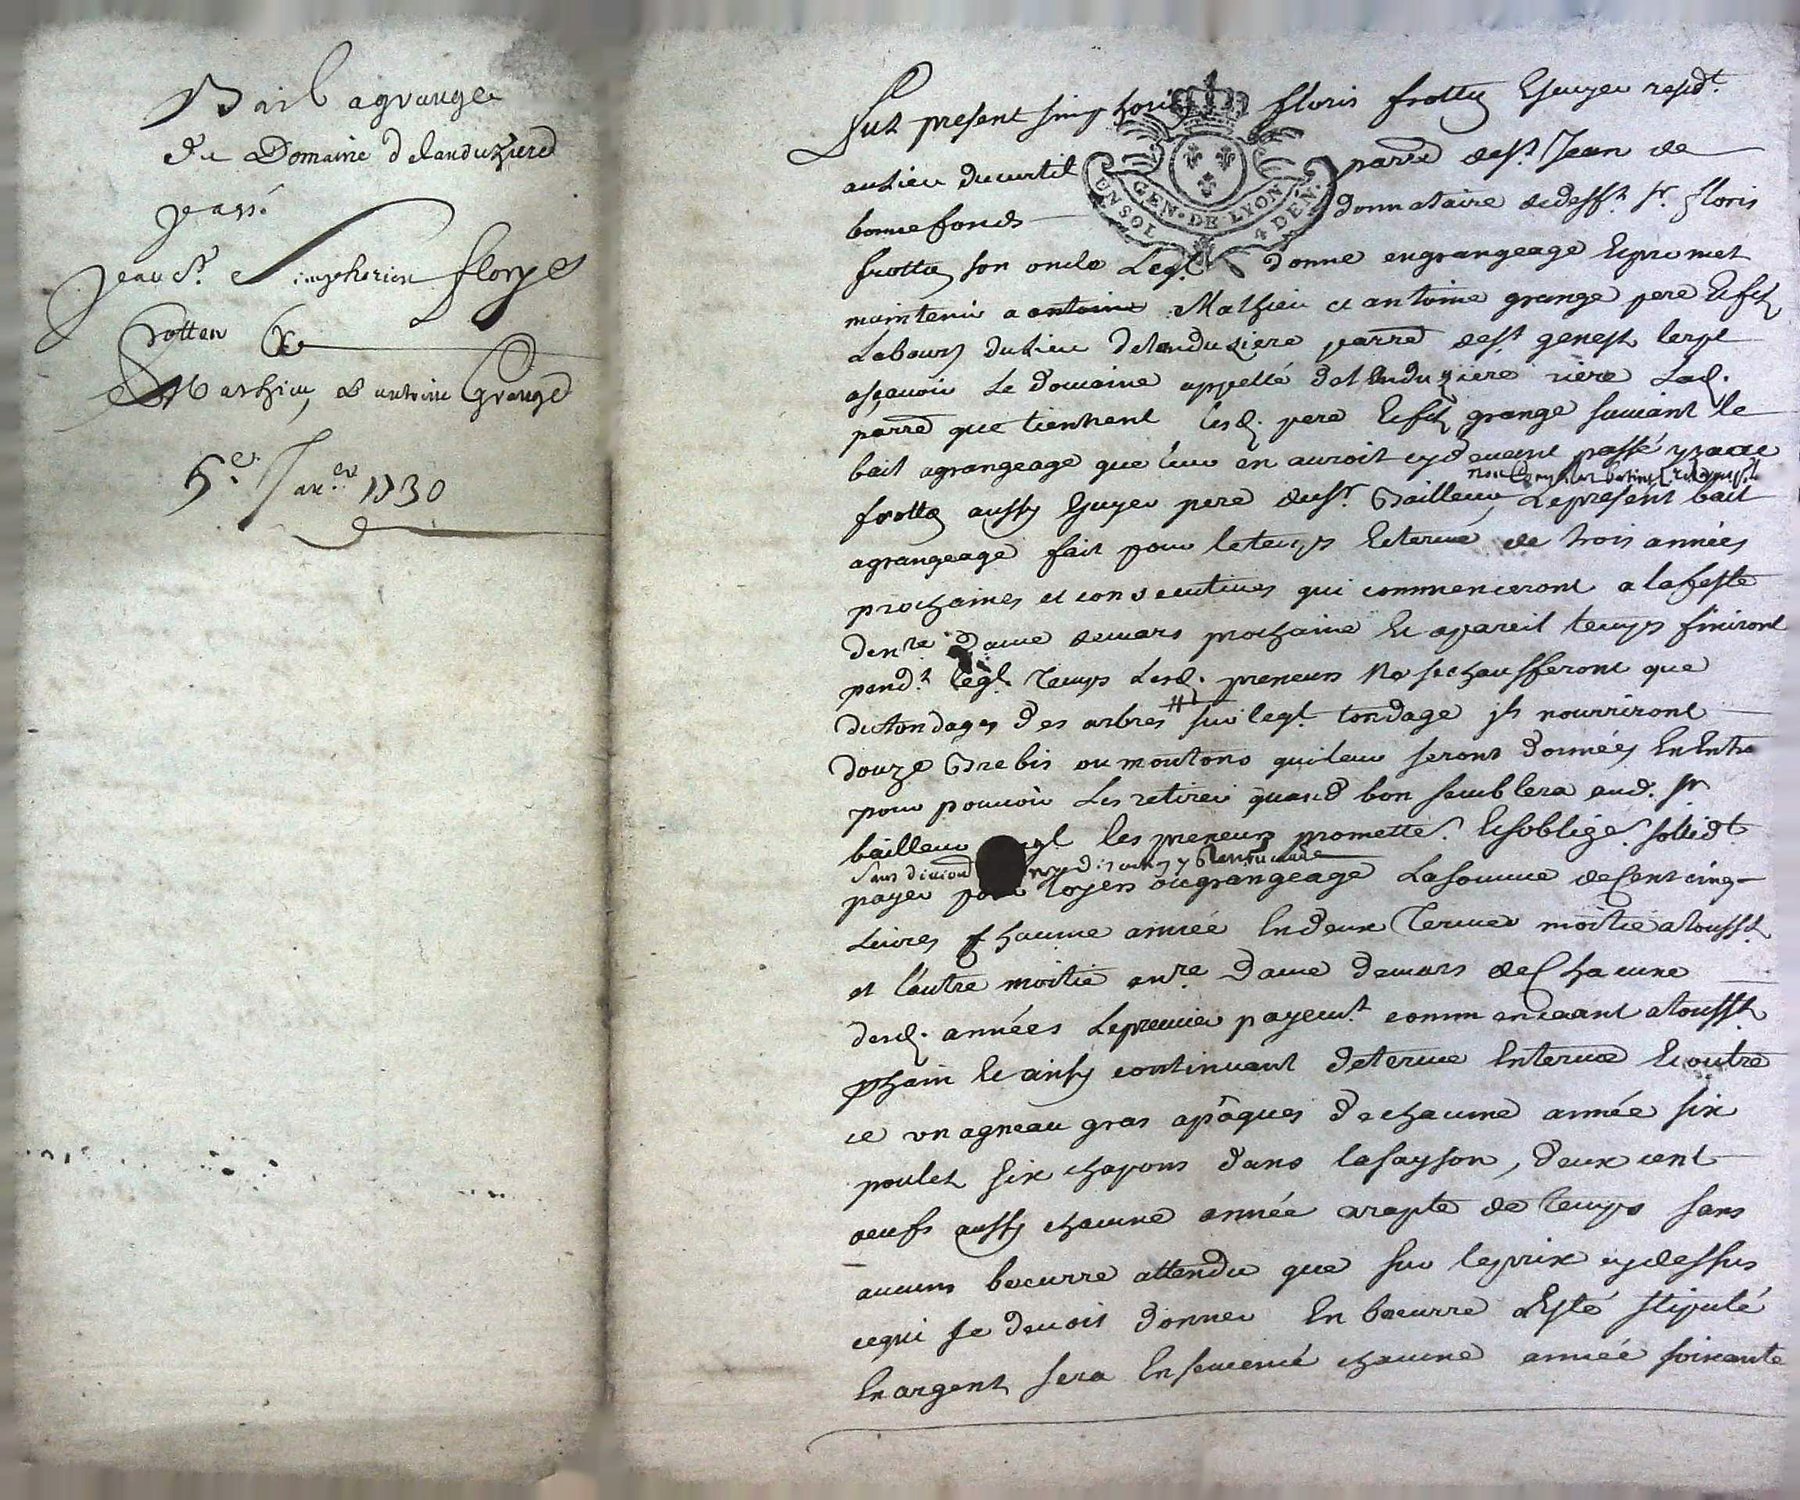 Bail agrange
du Domaine delanduziere
passé
Jean St. Simphorien florye
frotton Ex
Mathieu & antoine Grange
5e Janer 1730
GEN. DE LYON
UN SOL 4 DEN.
fut present simphorien floris frotton Escuyer resid.t
au lieu du curtil parre de st. Jean de
bonnefonds donnataire de deff.t sr. floris
frotton son oncle leql. donne en grangeage et promet
maintenir a antoine Mathieu et antoine grange pere et fils
Labours du lieu delanduziere parre de st genest lerpt
asçavoir Le domaine appellé delanduziere riere lad.
parre que tiennent lesd. pere et fils grange suivant le
bail agrangeage que leur en auroit cydevant passé
frotton aussy Escuyer pere dud sr. Bailleur, Le present bail
agrangeage fait pour le temps et terme de trois années
prochaines et consecutives qui commenceront a la feste
de nre dame de mars prochaine et a pareil temps finiront
pend.t leql. temps Lesd. preneurs ne se chaufferont que
du tondages des arbres sur leql. tondage ils nourriront
douze Brebis ou moutons qui leur seront données
pour pouvoir Les retirer quand bon semblera aud. sr
bailleur les preneurs promette. et soblige. sollid.t
sans division
payer pour loyers ou grangeage La somme de Cent cinq
Livres chacune année en deux termes moitié a toussts
et l'autre moitié a nre dame de mars de Chacune
desd. années Le premier payem.t commenceant a toussts
pchain et ainsy continuant de terme en terme et outre
ce un agneau gras a pâques de chacune année six
poulets six chapons dans la sayson, deux cent
oeufs aussy chacune année de temps sans
aucuns beurre attendu que sur le prix cy dessus
ce qui se devoit donner en beurre a esté stipulé
en argent, sera ensemencé chacune année soixante